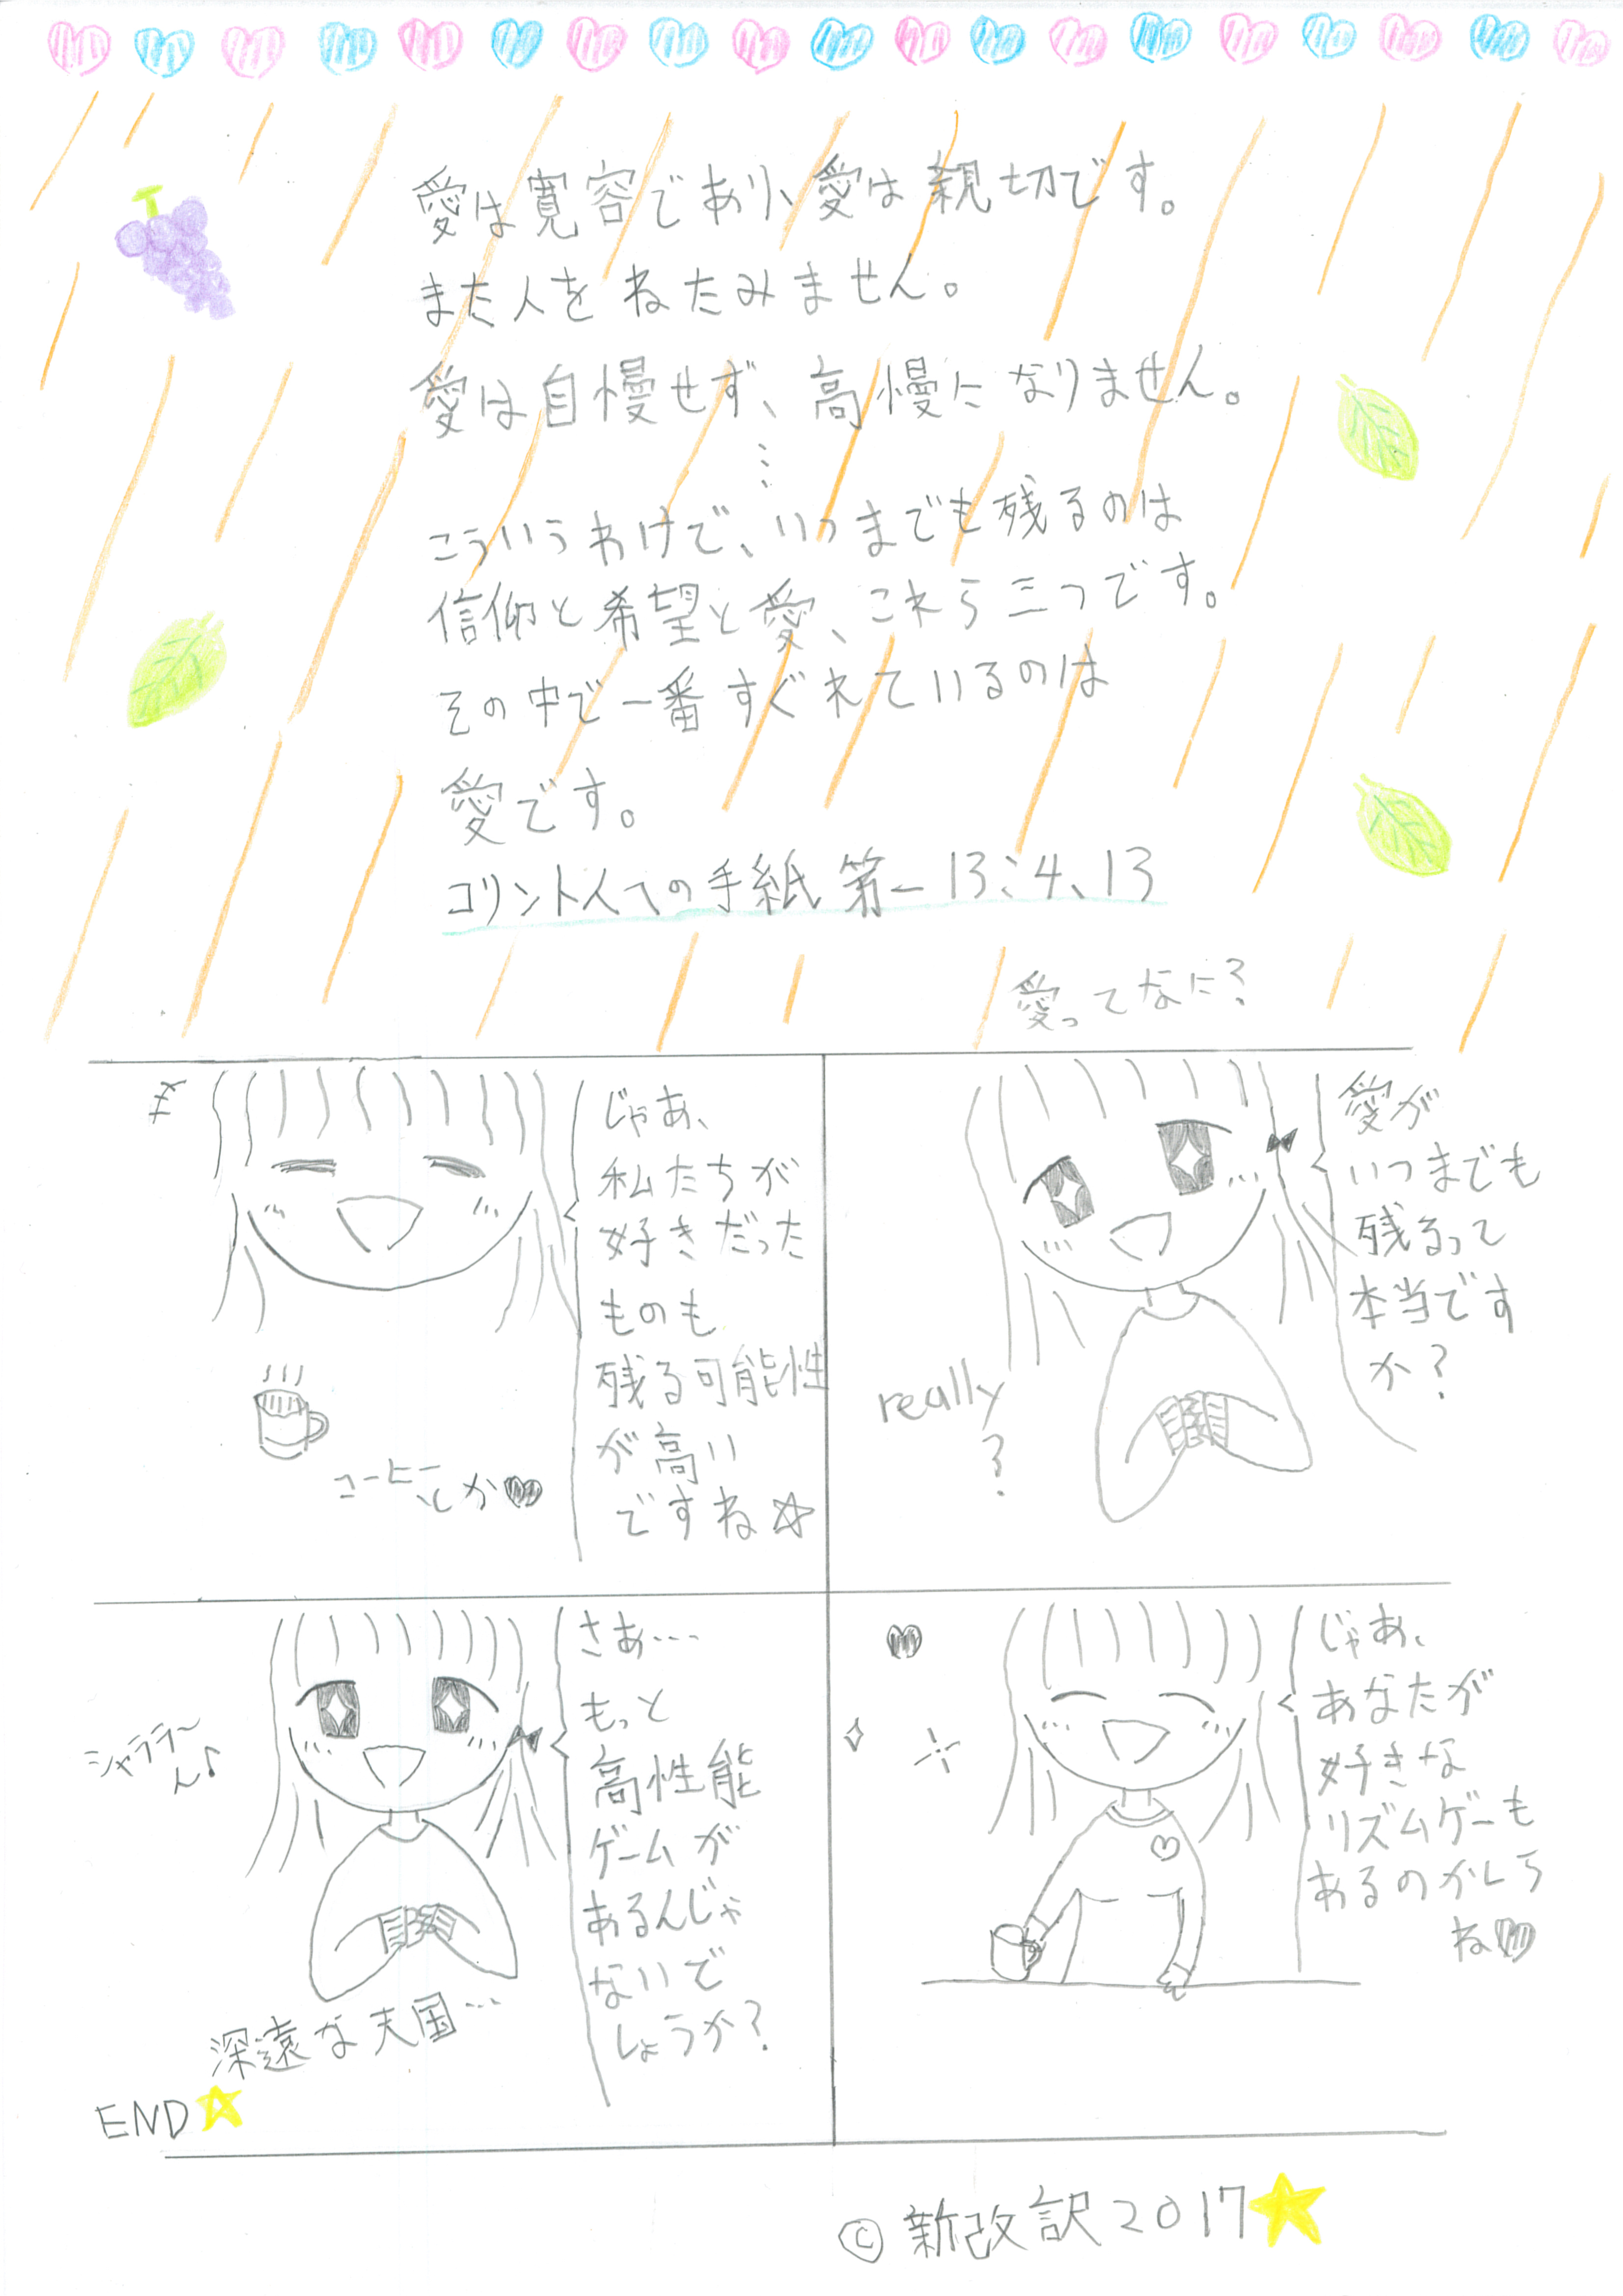 愛は寛容であり、愛は親切です。
また人をねたみません。
愛は自慢せず、高慢になりません。
⋮
こういうわけで、いつまでも残るのは
信仰と希望と愛、これら三つです。
その中で一番すぐれているのは
愛です。
コリント人への手紙 第一 13:4、13
愛ってなに?
愛が
いつまでも
残るって
本当です
か?
really
?
じゃあ、
私たちが
好きだった
ものも
残る可能性
が高い
ですね☆
コーヒー
とか♥
じゃあ、
あなたが
好きな
リズムゲーも
あるのかしら
ね♥
さあ…
もっと
高性能
ゲームが
あるんじゃ
ないで
しょうか?
シャララ〜
ん♪
深遠な天国…
END☆
© 新改訳2017★